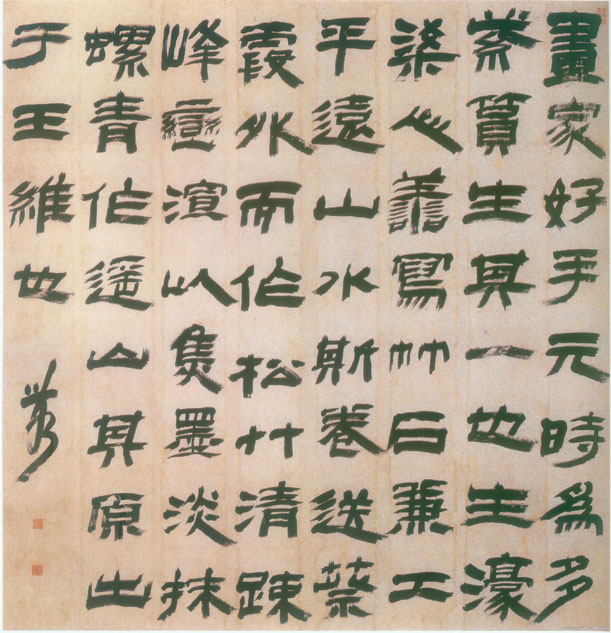 畫家好手元時為多
蔡質生其一也生濠
梁人善寫竹石兼工
平遠山水斯卷送蔡
霞外而作松竹清疎
峰巒渲以隻墨淡抹
螺青作遥山其原出
于王維也